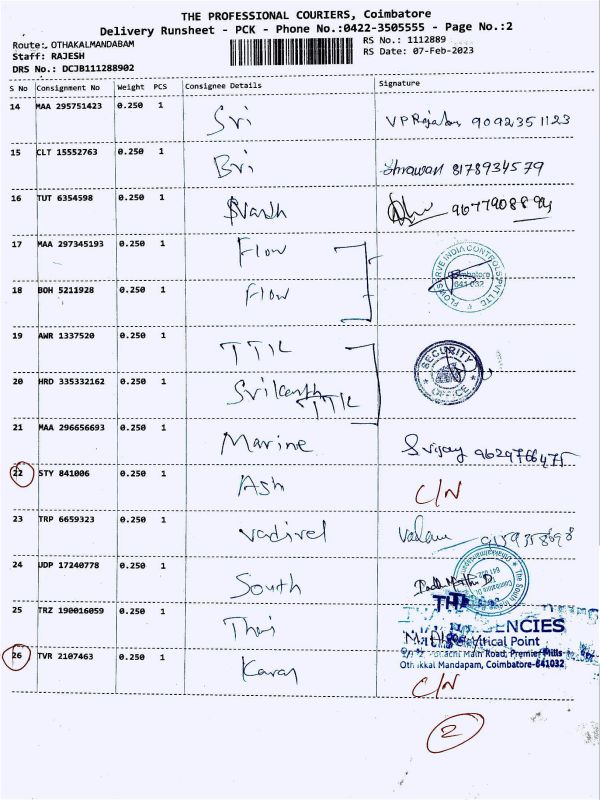 THE PROFESSIONAL COURIERS, Coimbatore
Delivery Runsheet - PCK - Phone No.:0422-3505555 - Page No.:2
Route: OTHAKALMANDABAM
RS No.: 1112889
Staff: RAJESH
RS Date: 07-Feb-2023
DRS No.: DCJB111288902
S No Consignment No Weight PCS Consignee Details Signature
14 MAA 295751423 0.250 1 Sri 9092351123
15 CLT 15552763 0.250 1 Bri 8178934579
16 TUT 6354598 0.250 1
17 MAA 297345193 0.250 1 Flow
FLOWSERVE INDIA CONTROLS PVT LTC
Coimbatore
641 032
18 BOH 5211928 0.250 1 Flow
19 AWR 1337520 0.250 1 TTK
SECURITY
OFFICE
20 HRD 335332162 0.250 1 Srikanth
TTK
21 MAA 296656693 0.250 1 Marine S Vijay 9629766475
22 STY 841006 0.250 1 Ash C/N
23 TRP 6659323 0.250 1 Vadivel
24 UDP 17240778 0.250 1 South
The South
Coimbatore
641 032
25 TRZ 190016059 0.250 1 Thai
ENCIES
Electrical Point
Main Road, Premier Mills
Othakkal Mandapam, Coimbatore-641032
26 TVR 2107463 0.250 1 C/N
2